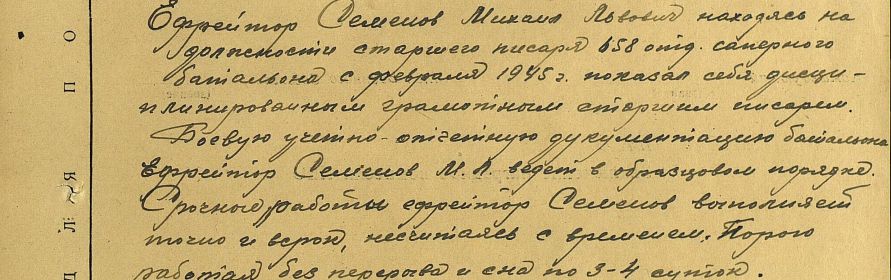 Ефрейтор Семенов Михаил Львович находясь на
должности старшего писаря 658 отд. саперного
батальона с февраля 1945 г. показал себя дисци-
плинированным грамотным старшим писарем.
Боевую учетно-отчетную документацию батальона
Ефрейтор Семенов М.Л. ведет в образцовом порядке.
Срочные работы ефрейтор Семенов выполняет
точно и верно, несчитаясь с временем. Порою
работая без перерыва и сна по 3-4 суток.
Д Л Я П О